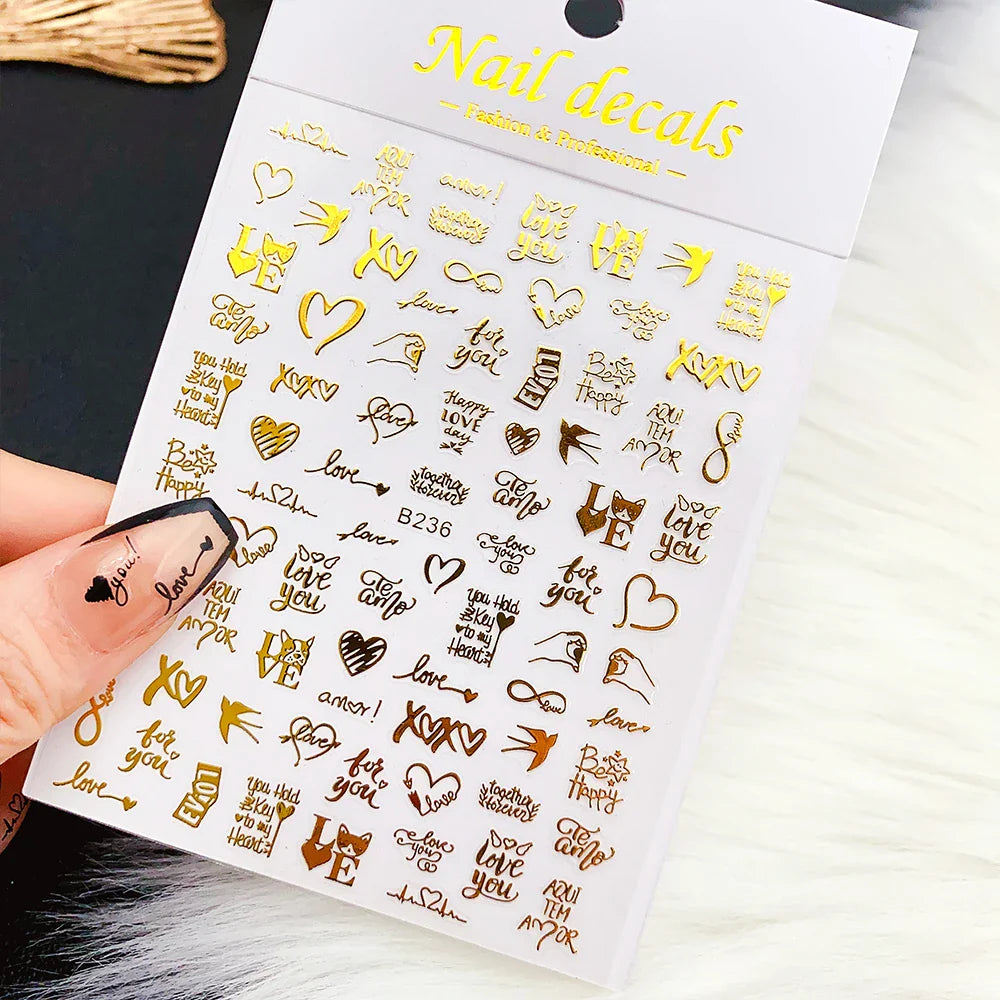 Nail decals
— Fashion & Professional —
AQUI
TEM
AMOR
amor!
together
forever
love
you
LOVE
You Hold
The Key
to my
Heart
LOVE
XO
love
love
love
you
Te
amo
for
you
LOVE
Be
Happy
XOXO
You Hold
The Key
to my
Heart
XOXO
love
Happy
LOVE
day
AQUI
TEM
AMOR
love
Be
Happy
love
together
forever
Te
amo
LOVE
love
you
B236
love
love
love
you
for
you
you!
love
love
you
Te
amo
You Hold
The Key
to my
Heart
AQUI
TEM
AMOR
LOVE
love
love
love
XO
amor!
XOXO
love
for
you
love
Be
Happy
love
LOVE
You Hold
The Key
to my
Heart
for
you
love
together
forever
Te
amo
LOVE
love
you
love
you
AQUI
TEM
AMOR